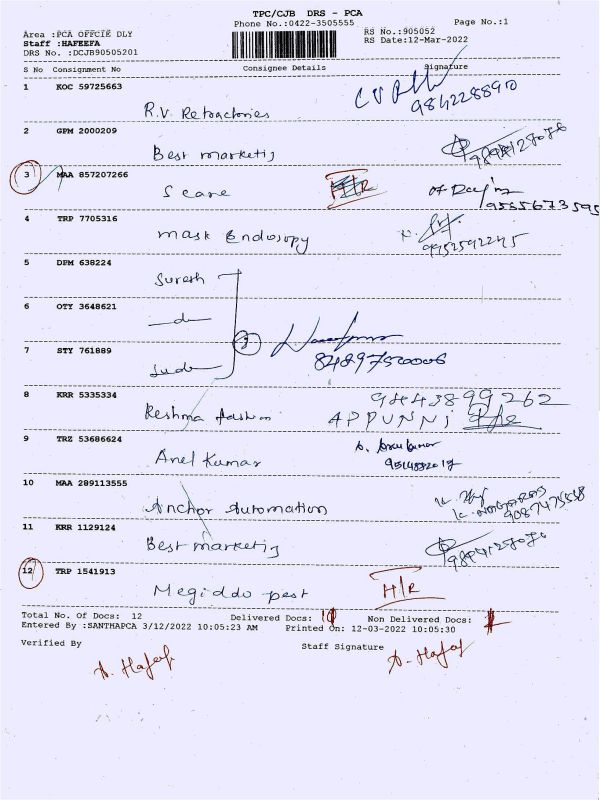 TPC/CJB DRS - PCA
Phone No.:0422-3505555 Page No.:1
Area :PCA OFFCIE DLY
Staff :HAFEEFA
DRS No. :DCJB90505201
RS No.:905052
RS Date:12-Mar-2022
S No Consignment No Consignee Details Signature
1 KOC 59725663
R.V. Retractories 9842288910
2 GPM 2000209
Best marketing
3 MAA 857207266
Scare H/R 9555673595
4 TRP 7705316
mask Endosopy 9952592245
5 DPM 638224
Suresh
6 OTY 3648621
do
7 STY 761889
3
8 KRR 5335334 9443899262
Reshma APPUNNI
9 TRZ 53686624
Anel Kumar
10 MAA 289113555
Anchor Automation
11 KRR 1129124
Best marketing
12 TRP 1541913
Megiddo pest H/R
Total No. Of Docs: 12 Delivered Docs: Non Delivered Docs:
Entered By :SANTHAPCA 3/12/2022 10:05:23 AM Printed On: 12-03-2022 10:05:30
Verified By Staff Signature